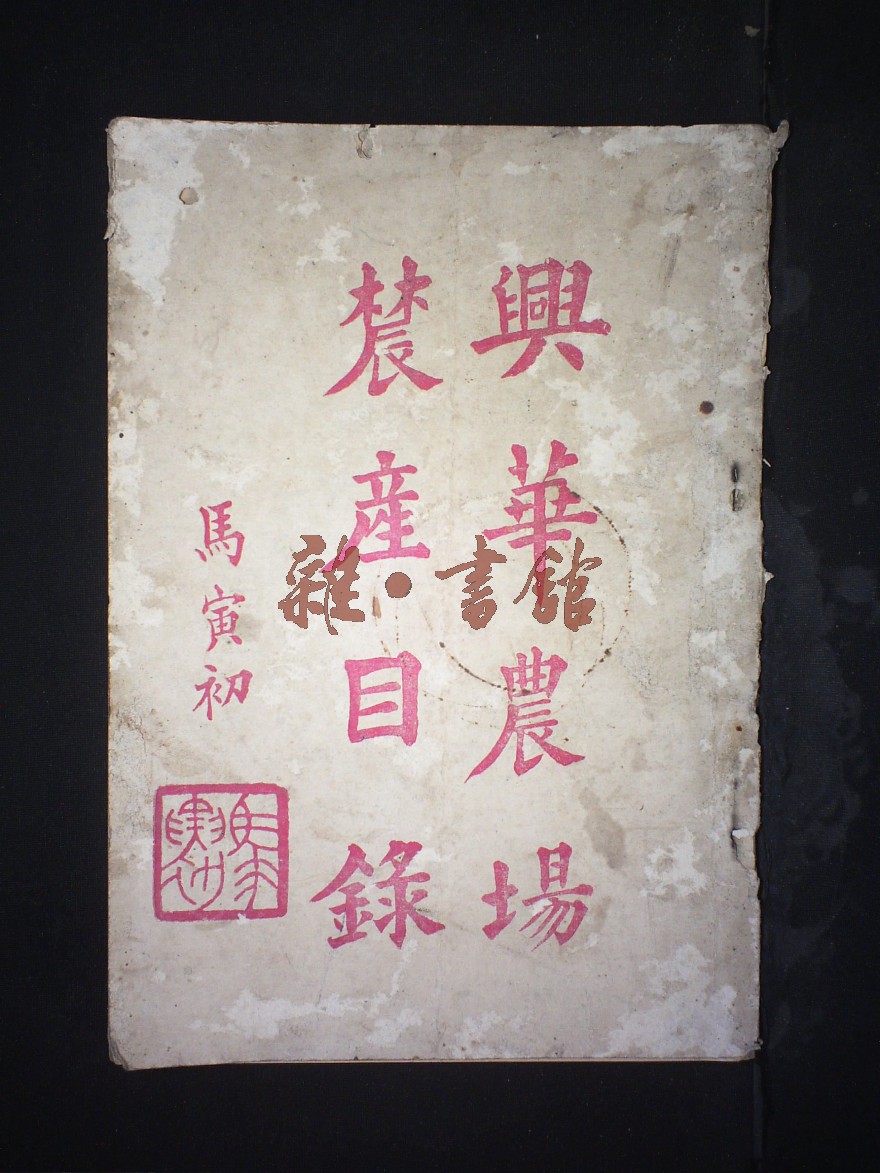 興華農場
辳產目錄
馬寅初
雜·書館